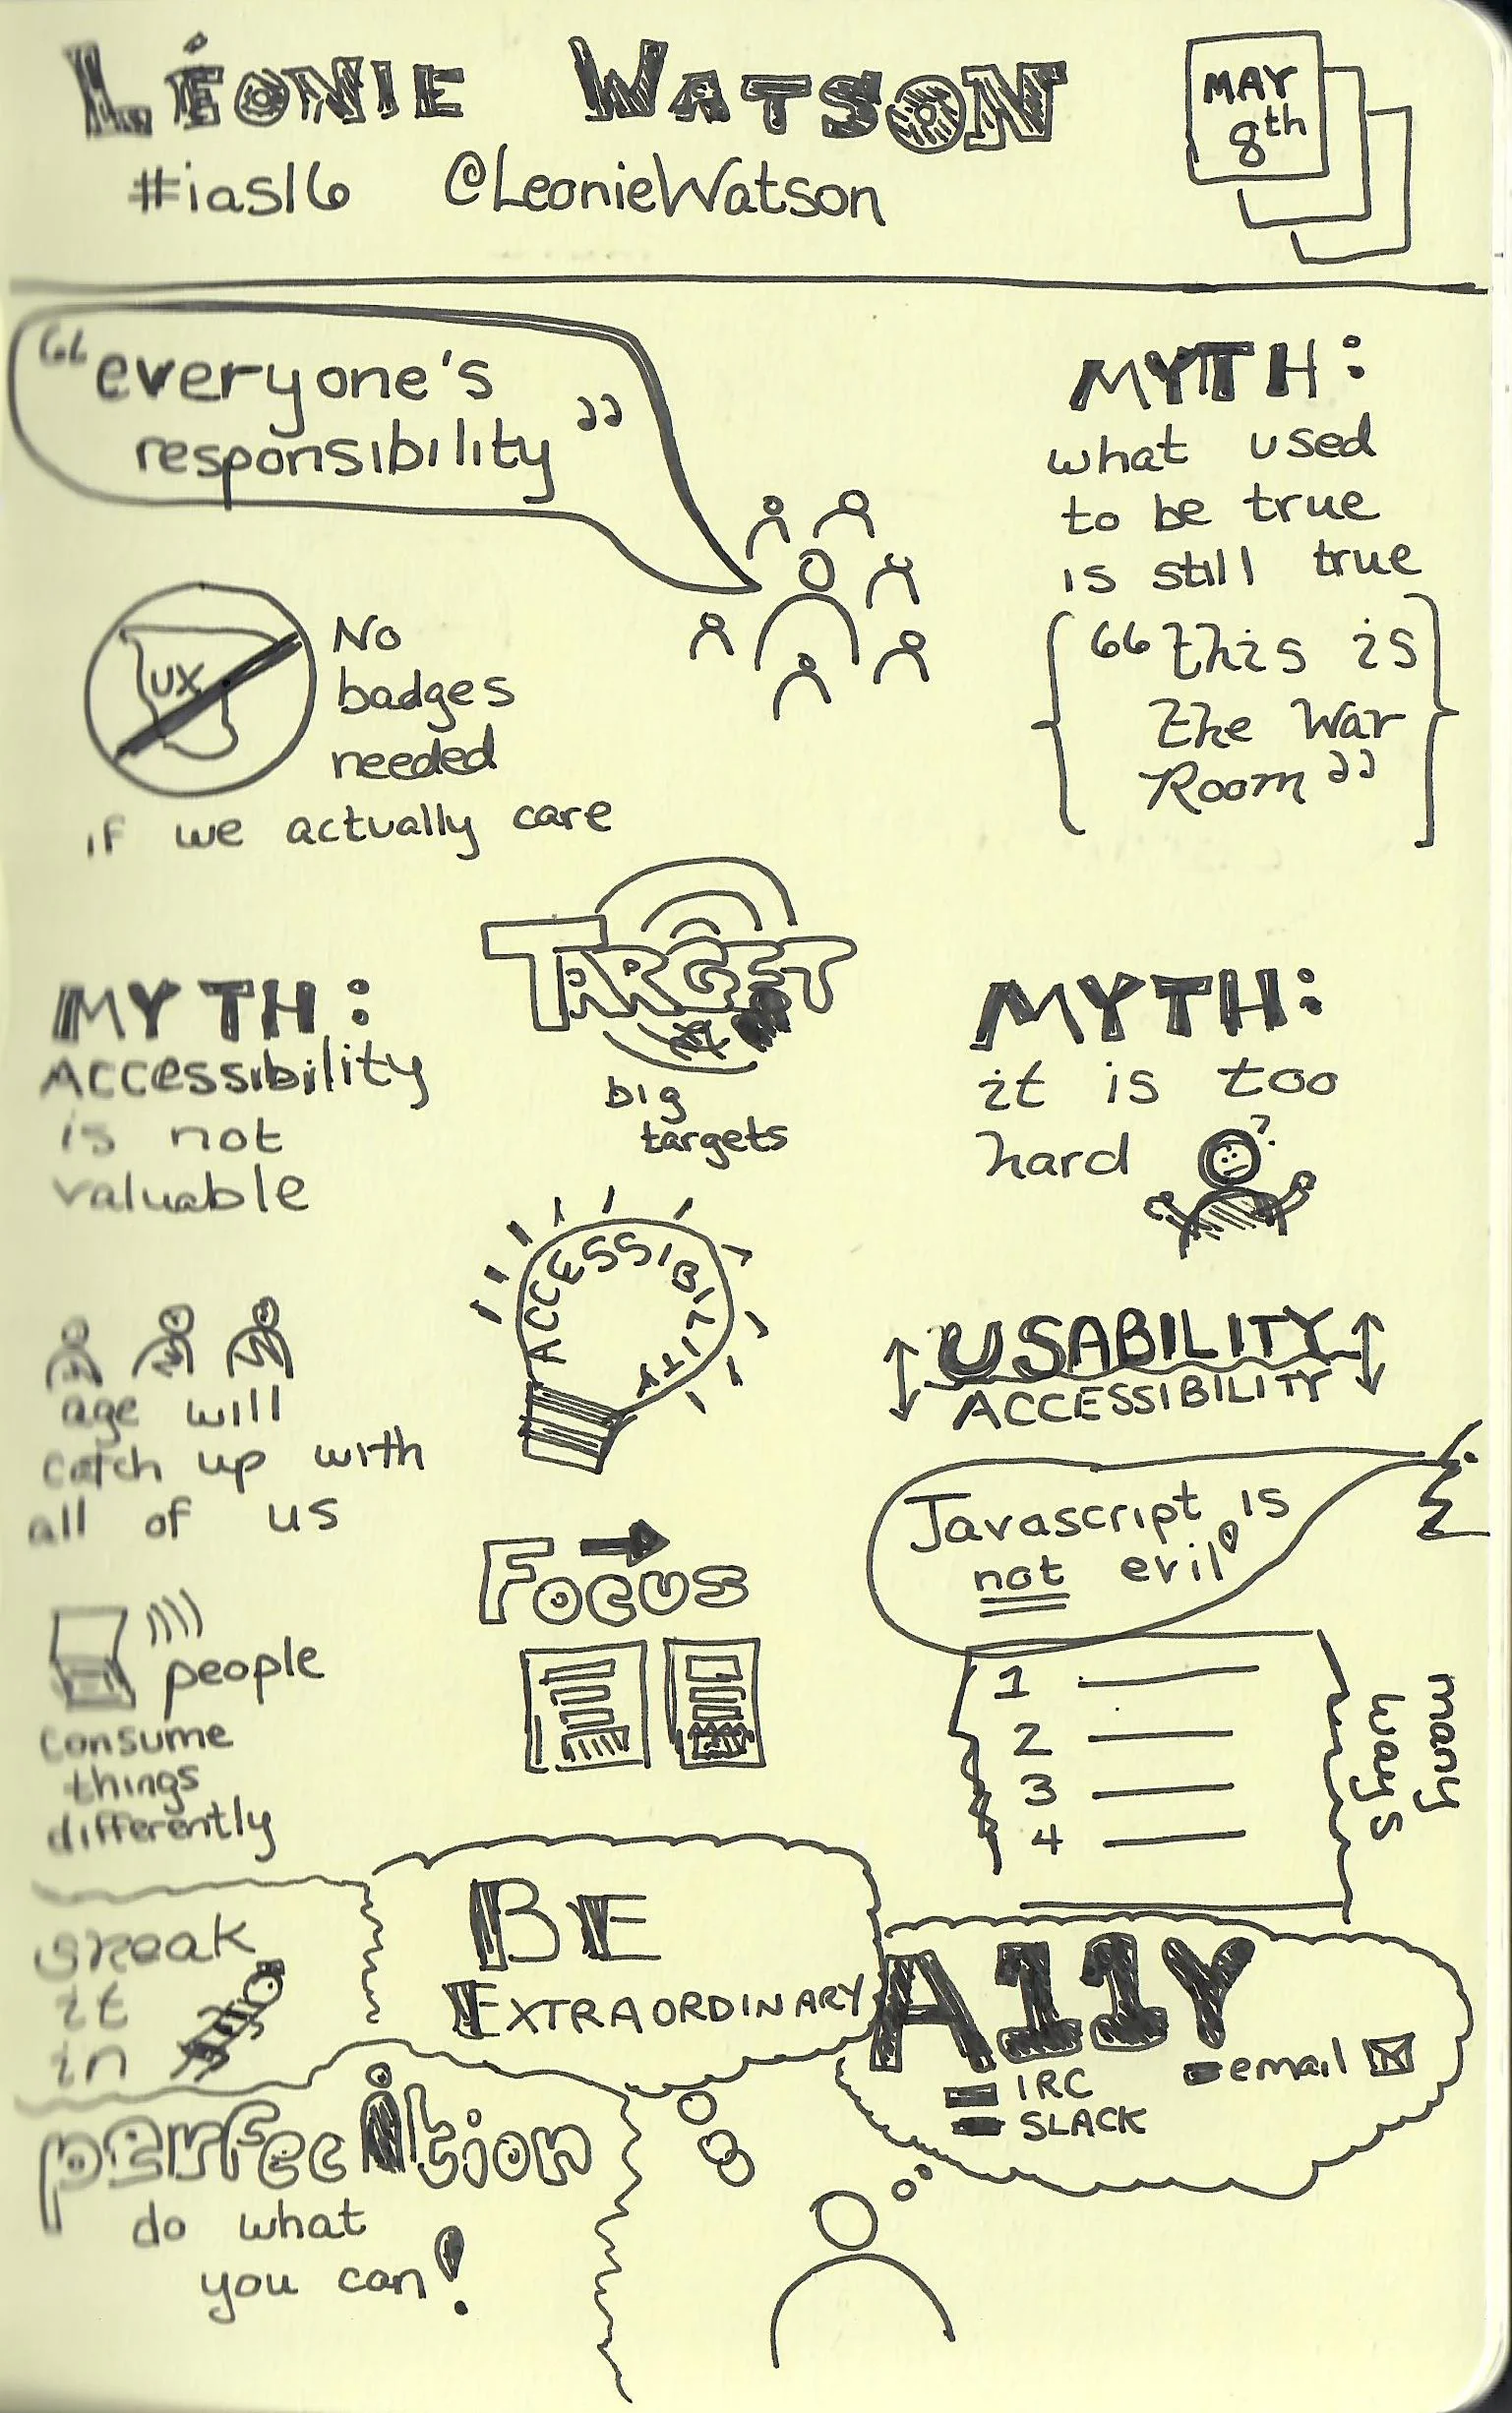 LÉONIE WATSON
#ias16 @LeonieWatson
MAY
8th
"everyone's
responsibility"
UX
No
badges
needed
if we actually care
MYTH:
what used
to be true
is still true
"this is
the War
Room"
TARGET
big
targets
MYTH:
ACCessibility
is not
valuable
MYTH:
it is too
hard
?
ACCESSIBILITY
age will
catch up with
all of us
USABILITY
ACCESSIBILITY
Javascript is
not evil!
FOCUS
people
consume
things
differently
1
2
3
4
many
ways
sneak
it
in
BE
EXTRAORDINARY
A11Y
IRC
SLACK
email
perfection
do what
you can!